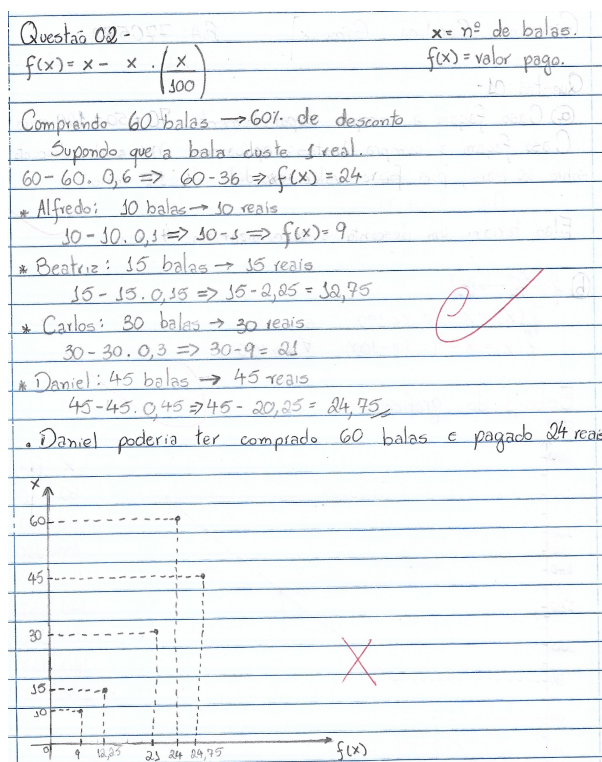 Questão 02 -
x = nº de balas.
f(x) = x - x . (x/100)
f(x) = valor pago.
Comprando 60 balas → 60% de desconto
Supondo que a bala custe 1 real.
60 - 60. 0,6 => 60 - 36 => f(x) = 24
* Alfredo: 10 balas → 10 reais
10 - 10. 0,1 => 10 - 1 => f(x) = 9
* Beatriz: 15 balas → 15 reais
15 - 15. 0,15 => 15 - 2,25 = 12,75
* Carlos: 30 balas → 30 reais
30 - 30. 0,3 => 30 - 9 = 21
* Daniel: 45 balas → 45 reais
45 - 45. 0,45 => 45 - 20,25 = 24,75
. Daniel poderia ter comprado 60 balas e pagado 24 reais
x
60
45
30
15
10
0 9 12,25 21 24 24,75 f(x)